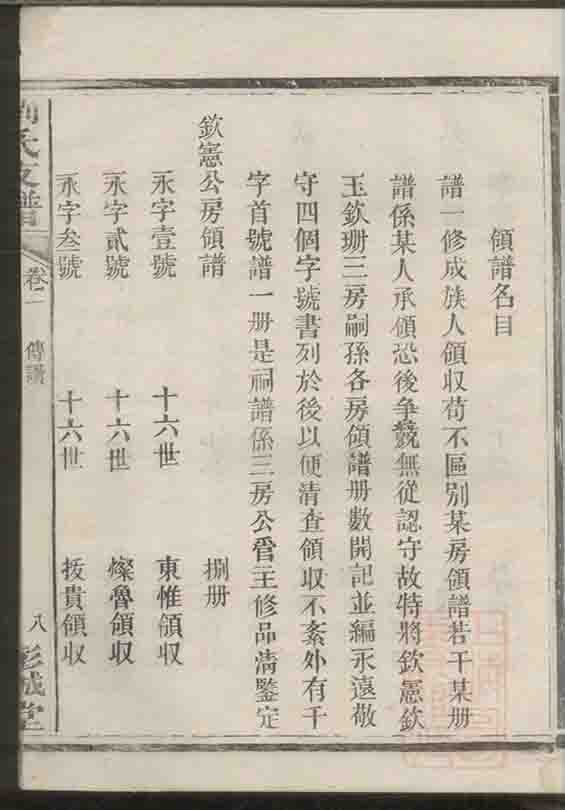 領譜名目
譜一修成族人領収苟不區別某房領譜若干某册
譜係某人承領恐後争競無從認守故特將欽憲欽
玉欽珊三房嗣孫各房領譜册數開記並編永遠敬
守四個字號書列於後以便清查領収不紊外有千
字首號譜一册是祠譜係三房公管主修品清鑒定
欽憲公房領譜 捌册
永字壹號 十六世 東惟領収
永字貳號 十六世 燦魯領収
永字叁號 十六世 抜貴領収
劉氏支譜 卷一 傳譜 八 彭城堂